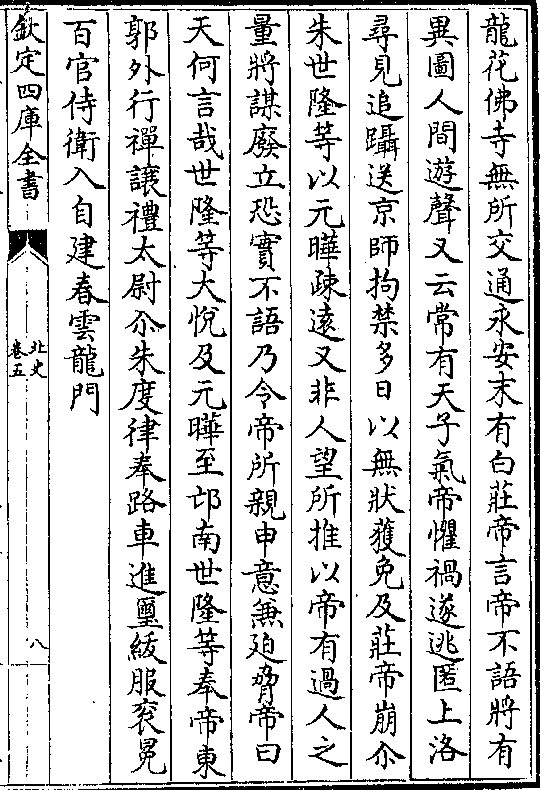 龍花佛寺無所交通永安末有白莊帝言帝不語將有
異圖人間遊聲又云常有天子氣帝懼禍遂逃匿上洛
尋見追躡送京師拘禁多日以無狀獲免及莊帝崩尒
朱世隆等以元曄疎遠又非人望所推以帝有過人之
量將謀廢立恐實不語乃令帝所親申意兼廹脅帝曰
天何言哉世隆等大悅及元曄至邙南世隆等奉帝東
郭外行禪讓禮太尉尒朱度律奉路車進璽紱服衮冕
百官侍衛入自建春雲龍門
欽定四庫全書
北史
卷五
八